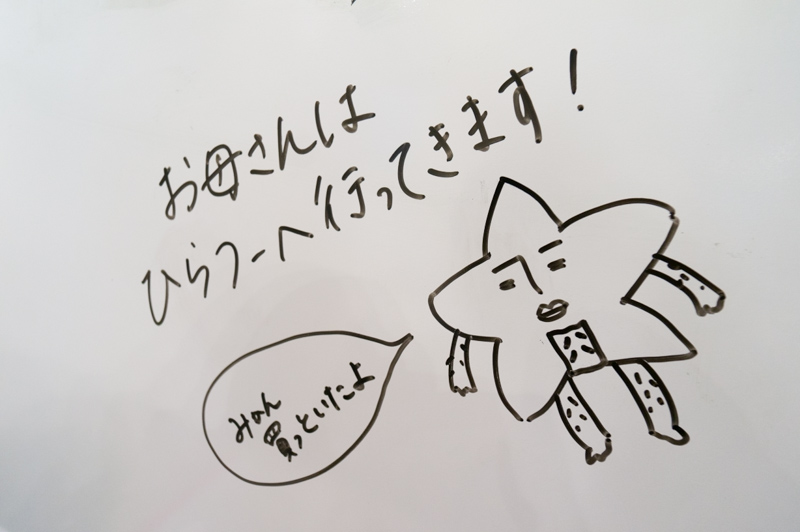 お母さんは
ひらフーへ行ってきます!
みかん
買っといたよ